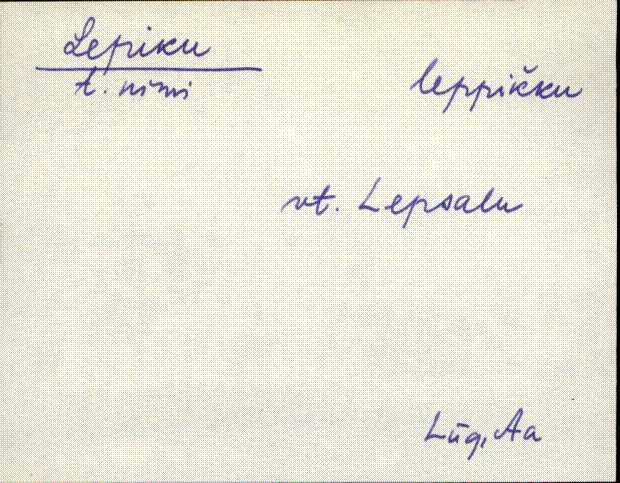 Lepiku
t. nimi
leppikku
vt. Lepsalu
Lüg, Aa